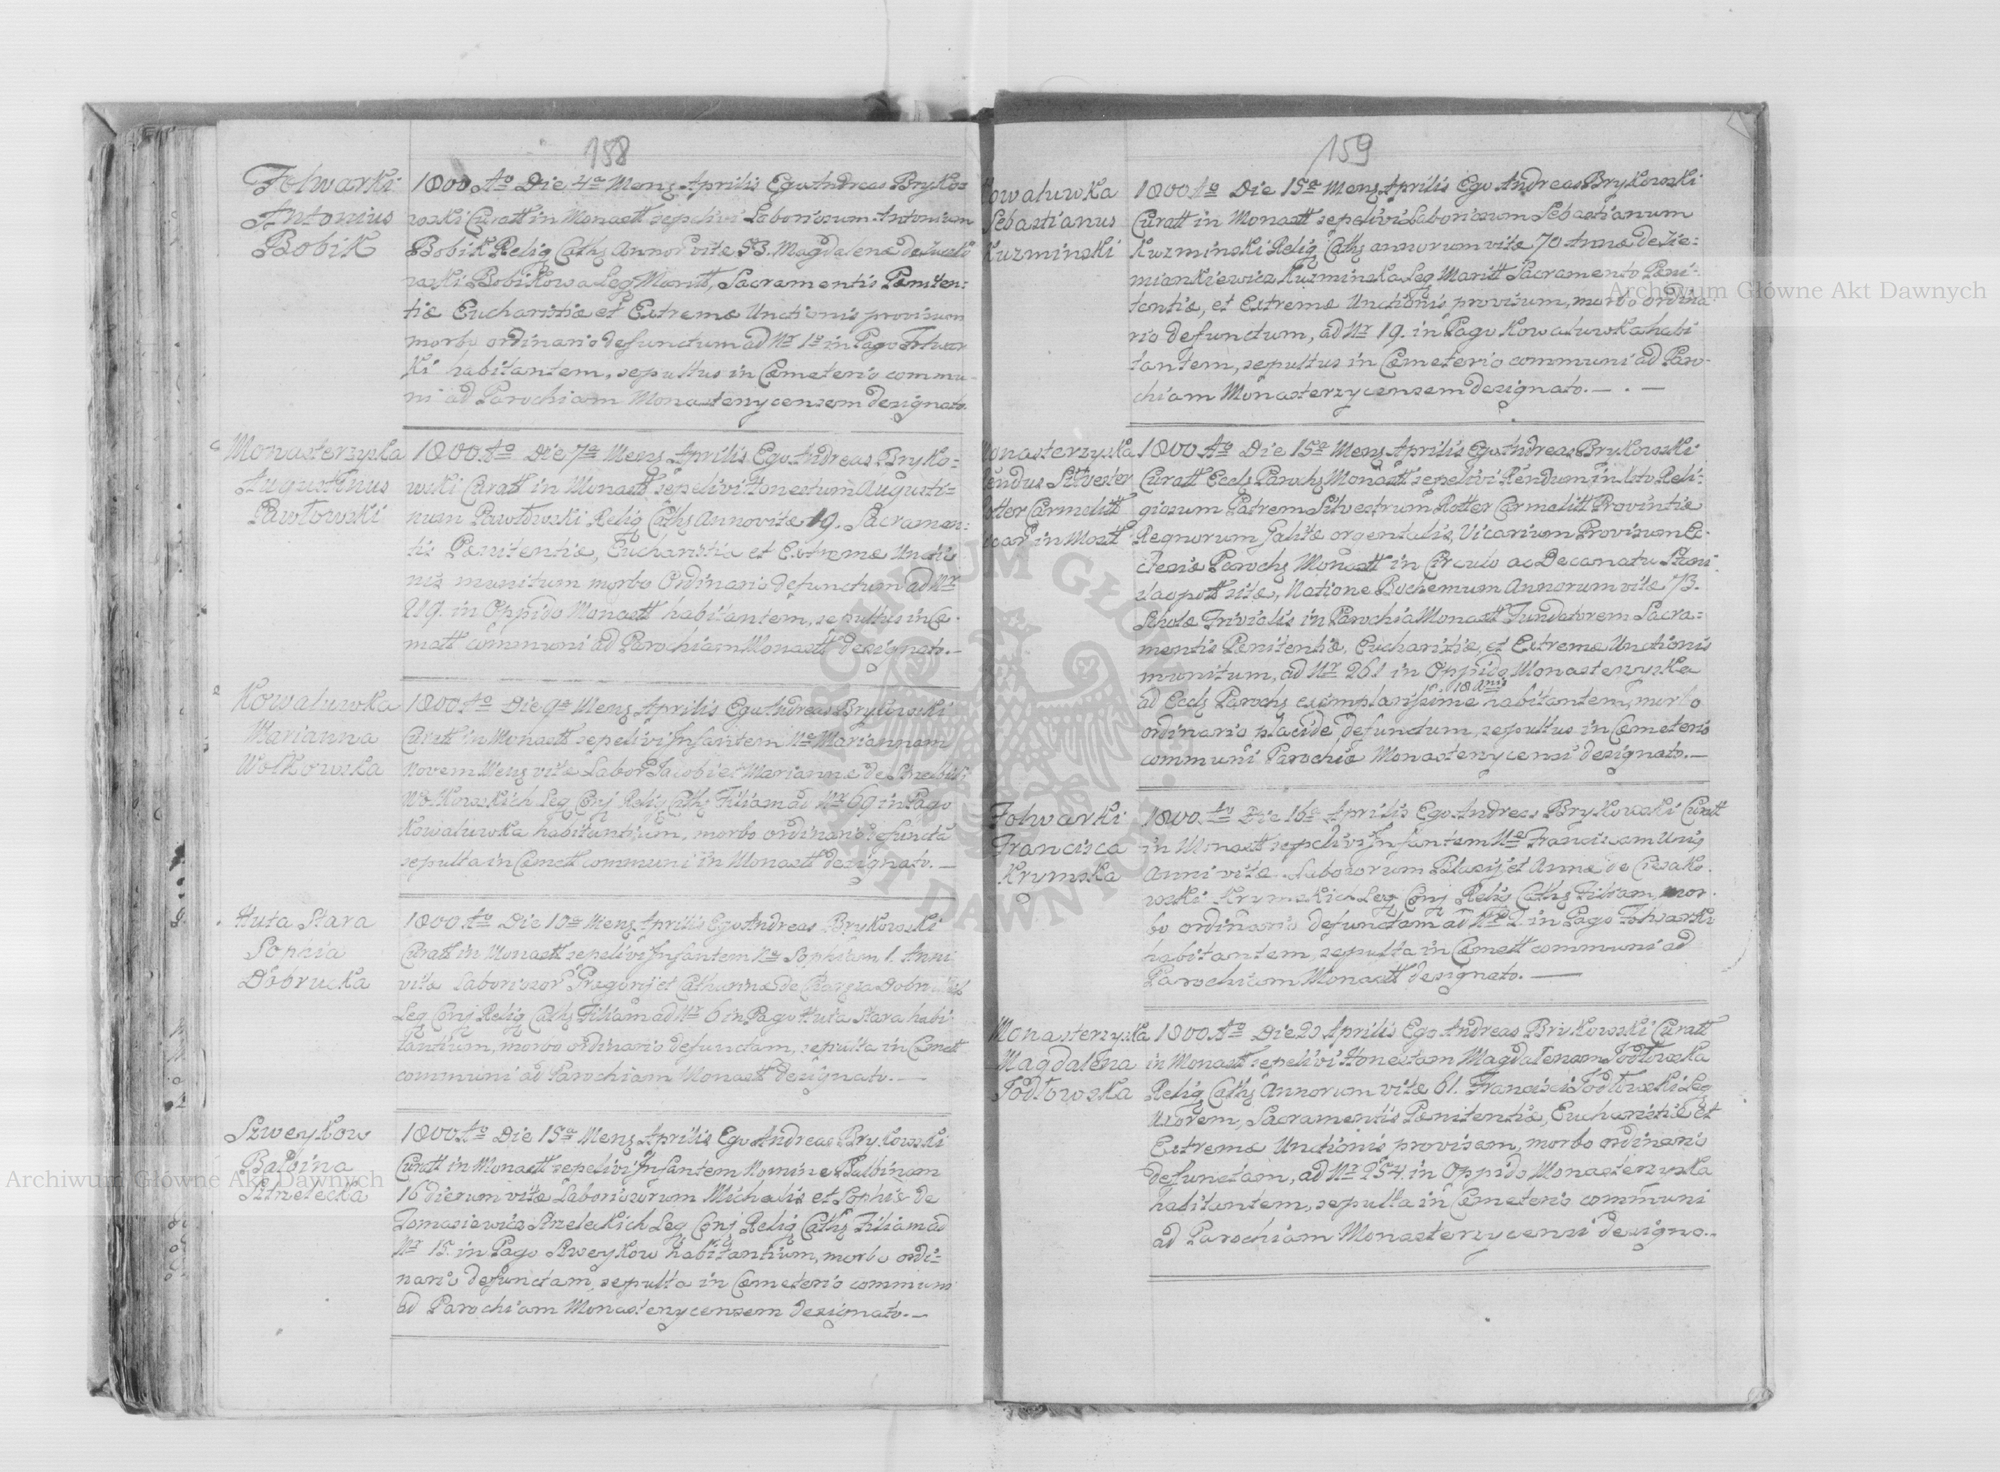 158
Folwarki
Antonius
Bobik
1800 Ao Die 4a Mens Aprilis Ego Andreas Bryko=
wski Curatt in Monastt sepelivi Laboriosum Antonium
Bobik Relig Cath Annor vitæ 53. Magdalenæ de
wski Bobikowa Leg Maritt, Sacramentis Pœniten:
tiæ Eucharistiæ et Extremæ Unctionis provisum
morbo ordinario defunctum ad Nr 13 in Pago Folwar
ki habitantem, sepultus in Cœmeterio commu-
ni ad Parochiam Monasterzycensem designato.
Monasterzyska
Augustinus
Pawłowski
1800 Ao Die 7a Mens Aprilis Ego Andreas Bryko-
wski Curatt in Monastt sepelivi Honestum Augusti-
num Pawłowski Relig Cath Anno vitæ 19. Sacramen-
tis Pœnitentiæ, Eucharistiæ et Extremæ Unctio
nis munitum morbo Ordinario defunctum ad Nr
219. in Oppido Monastt habitantem, sepultus in Cœ-
mett communi ad Parochiam Monastt designato.-
Kowaluwka
Marianna
Wołkowska
1800 Ao Die 9a Mens Aprilis Ego Andreas Brykowski
Curatt in Monastt sepelivi Infantem Ne Mariannam
Novem Mens vitæ Labor Jacobi et Mariannæ de
Wołkowskich Leg Conj Relig Cath Filiam ad Nr 69 in Pago
Kowaluwka habitantium, morbo ordinario defuncta
sepulta in Cœmett communi in Monastt designato.-
Huta Stara
Sophia
Dobrucka
1800 Ao Die 10a Mens Aprilis Ego Andreas Brykowski
Curatt in Monastt sepelivi Infantem Ne Sophiam 1. Anni
vitæ Laborioso Gregorij et Catharinæ de
Leg Conj Relig Cath Filiam ad Nr 6 in Pago Huta Stara habi
tantium, morbo ordinario defunctam, sepulta in Cœmett
communi ad Parochiam Monastt designato.-
Szweykow
Balbina
Strzelecka
1800 Ao Die 15a Mens Aprilis Ego Andreas Brykowski
Curatt in Monastt sepelivi Infantem Nomine Balbinam
16 dierum vitæ Laboriosorum Michælis et Sophiæ de
Tomasiewicz Strzeleckich Leg Conj Relig Cath Filiam ad
Nr 15. in Pago Szweykow habitantium, morbo ordi-
nario defunctam, sepulta in Cœmeterio communi
ad Parochiam Monasterzycensem designato.-
159
Kowaluwka
Sebastianus
Kuzminski
1800 Ao Die 15a Mens Aprilis Ego Andreas Brykowski
Curatt in Monastt sepelivi Laboriosum Sebastianum
Kuzminski Relig Cath annorum vitæ 70 Annæ de Zie:
miankiewicz Kuzminska Leg Maritt Sacramento Pœni-
tentiæ, et Extremæ Unctionis provisum, morbo ordina
rio defunctum, ad Nr 19. in Pago Kowaluwka habi
tantem, sepultus in Cœmeterio communi ad Paro-
chiam Monasterzycensem designato.- . -
Monasterzyska
Silvester
Rotter Carmelitt
in Mostt
1800 Ao Die 15a Mens Aprilis Ego Andreas Brykowski
Curatt Eccls Parochs Monastt sepelivi Rendum in Xsto Reli-
giosum Patrem Silvestrum Rotter Carmelitt Provintiæ
Regnorum Galitæ orgentalis, Vicarium Provisum Ec-
clesiæ Parochs Monastt in Circulo ac Decanatu Stani
Natione Bochemum Annorum vitæ 73.
Scholæ Trivialis in Parochia Monastt Fundatorem Sacra=
mentis Pœnitentiæ, Eucharistiæ, et Extremæ Unctionis
munitum, ad Nr 261 in Oppido Monasterzyska
ad Eccls Parochs exemplarissime 18 Anis habitantem, morbo
ordinario placide defunctum, sepultus in Cœmeterio
communi Parochiæ Monasterzycensi designato.-
Folwarki
Francisca
Krymska
1800. Ao Die 16a Aprilis Ego Andreas Brykowski Curatt
in Monastt sepelivi Infantem Ne Franciscam Unig
Anni vitæ. Laboriorum Blasij et Annæ de
wski Krymskich Leg Conj Relig Cath Filiam, mor-
bo ordinario defunctam ad Nr 2. in Pago Folwarki
habitantem, sepulta in Cœmett communi ad
Parochiam Monastt designato.-
Monasterzyska
Magdalena
Jodłowska
1800. Ao Die 20 Aprilis Ego Andreas Brykowski Curatt
in Monastt sepelivi Honestam Magdalenam Jodłowska
Relig Cath Annorum vitæ 61. Francisci Jodłowski Leg
Uxorem, Sacramentis Pœnitentiæ, Eucharistiæ et
Extremæ Unctionis provisam, morbo ordinario
defunctam, ad Nr 254. in Oppido Monasterzyska
habitantem, sepulta in Cœmeterio communi
ad Parochiam Monasterzycensi designo.-
Archiwum Główne Akt Dawnych
Archiwum Główne Akt Dawnych